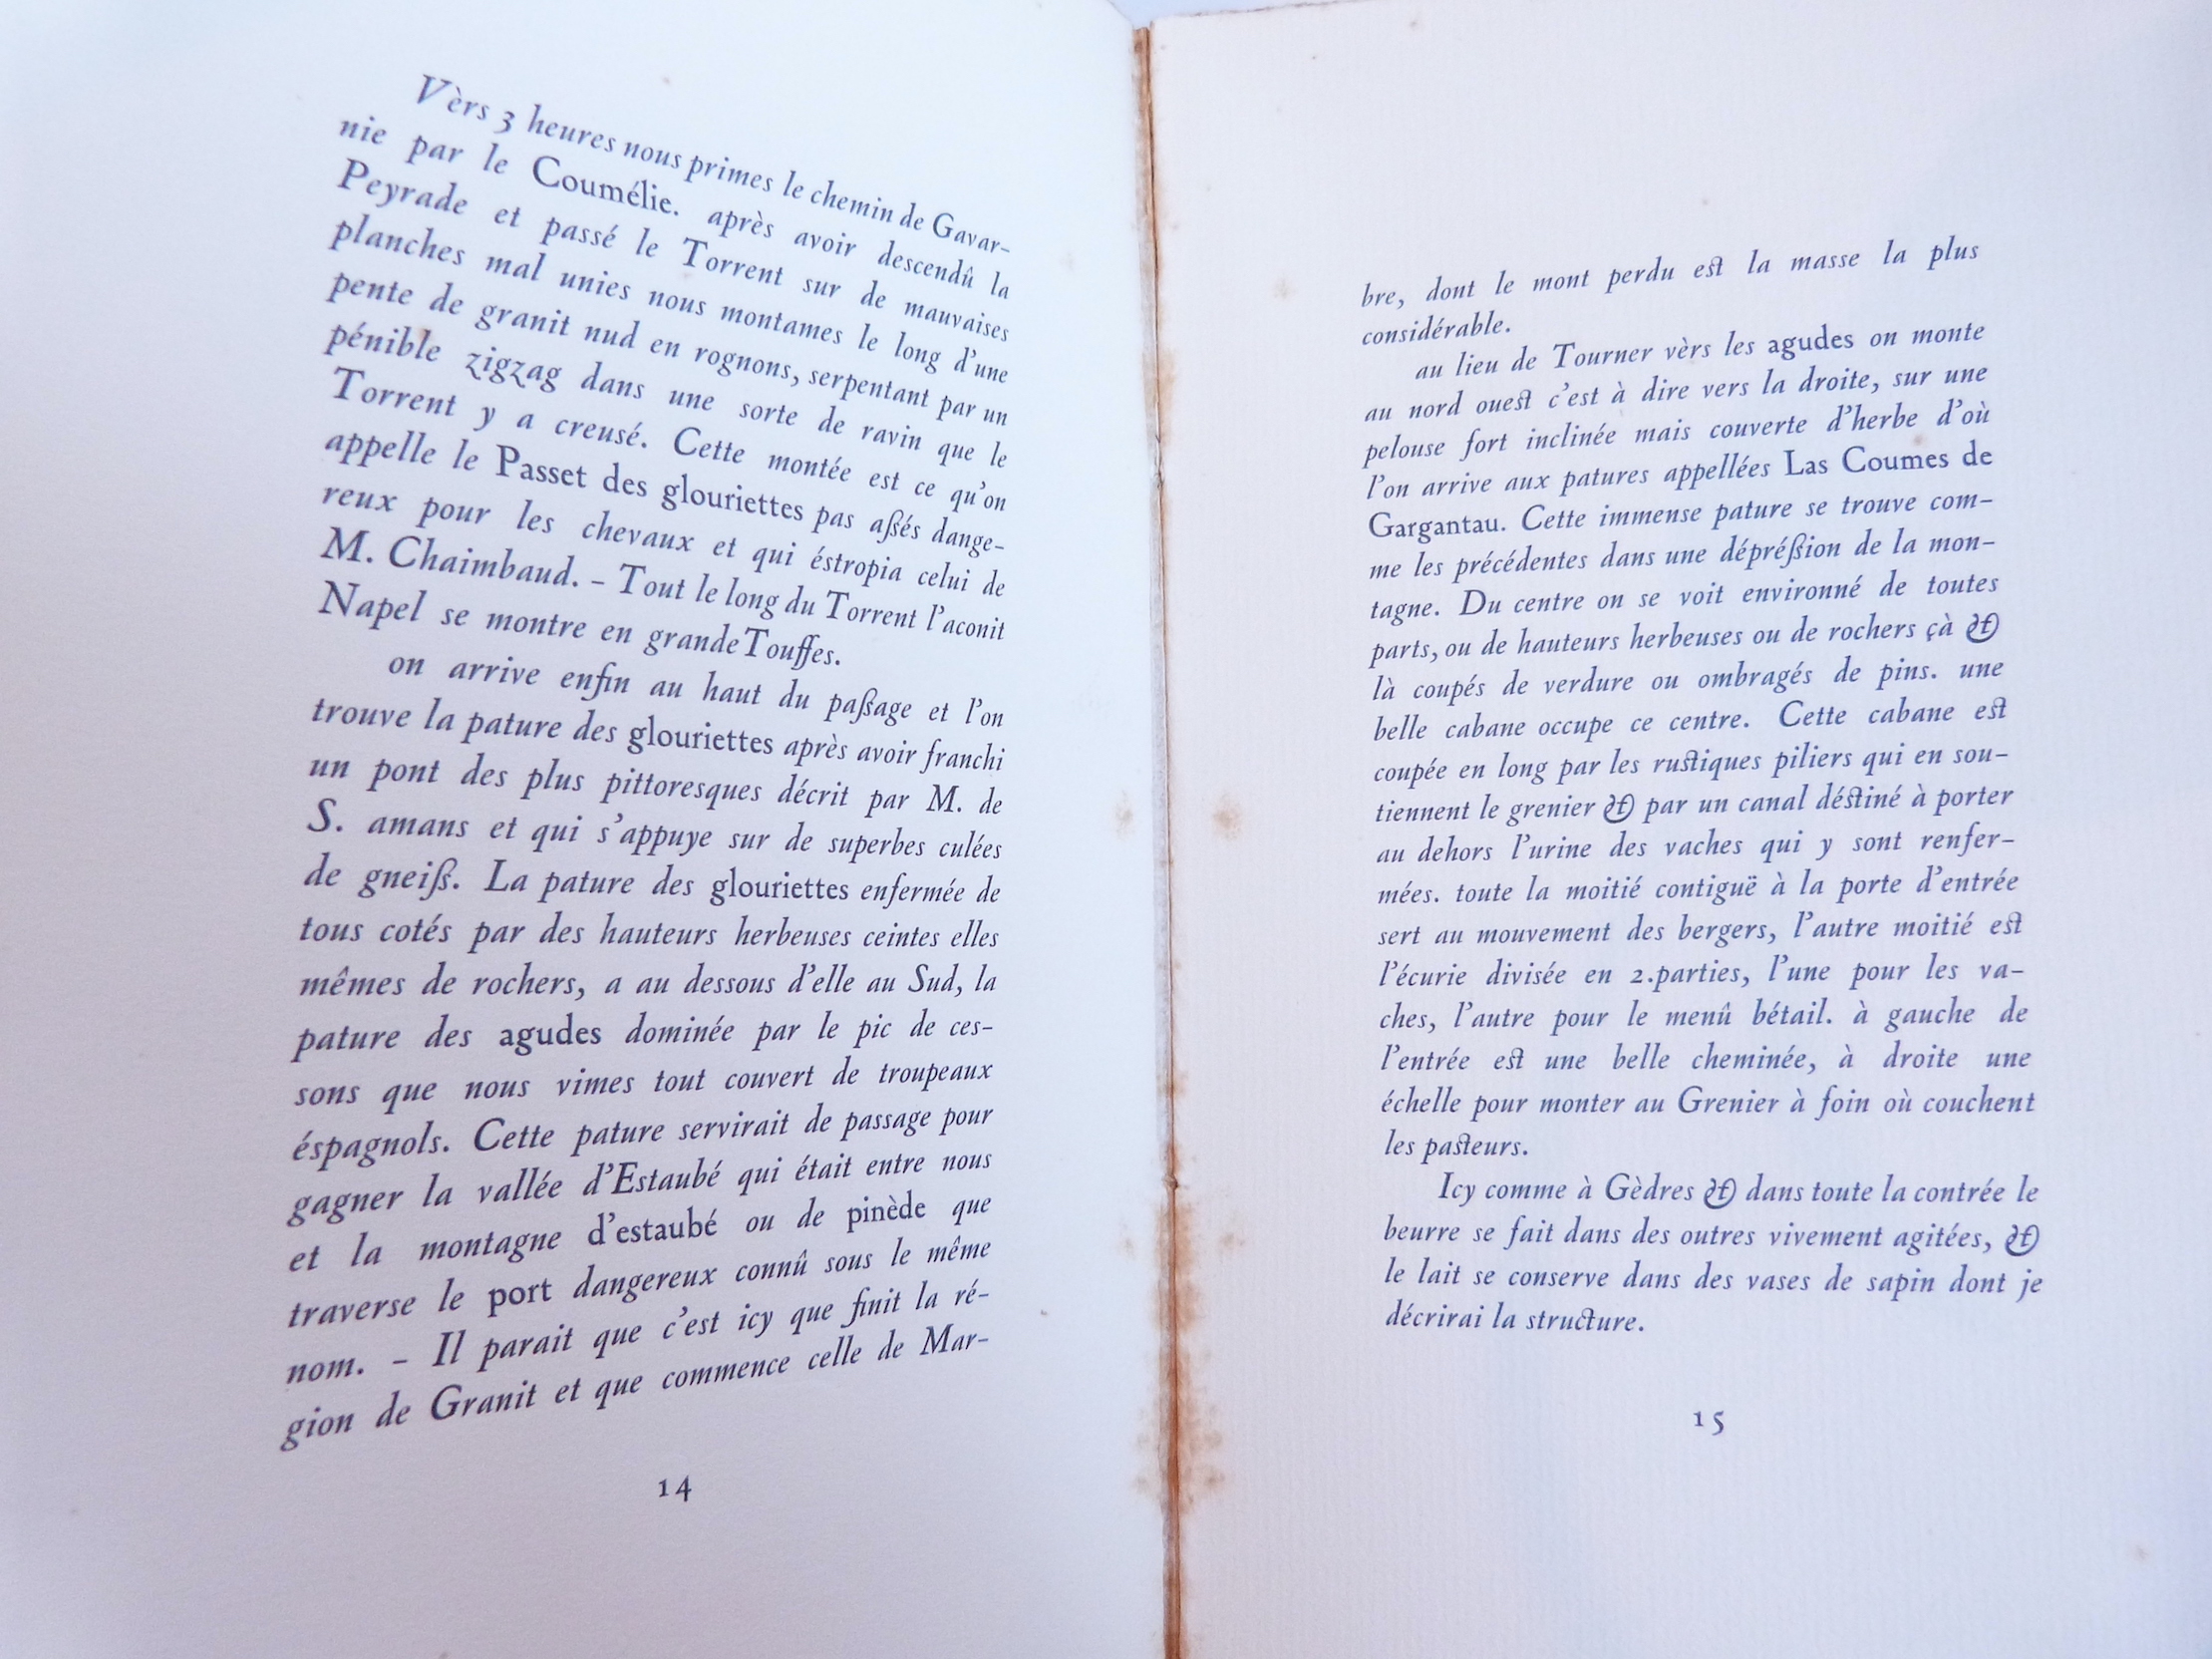 Vèrs 3 heures nous primes le chemin de Gavar-
nie par le Coumélie. après avoir descendû la
Peyrade et passé le Torrent sur de mauvaises
planches mal unies nous montames le long d'une
pente de granit nud en rognons, serpentant par un
pénible zigzag dans une sorte de ravin que le
Torrent y a creusé. Cette montée est ce qu'on
appelle le Passet des glouriettes pas aßés dange-
reux pour les chevaux et qui éstropia celui de
M. Chaimbaud. - Tout le long du Torrent l'aconit
Napel se montre en grande Touffes.
on arrive enfin au haut du paßage et l'on
trouve la pature des glouriettes après avoir franchi
un pont des plus pittoresques décrit par M. de
S. amans et qui s'appuye sur de superbes culées
de gneiß. La pature des glouriettes enfermée de
tous cotés par des hauteurs herbeuses ceintes elles
mêmes de rochers, a au dessous d'elle au Sud, la
pature des agudes dominée par le pic de ces-
sons que nous vimes tout couvert de troupeaux
éspagnols. Cette pature servirait de passage pour
gagner la vallée d'Estaubé qui était entre nous
et la montagne d'estaubé ou de pinède que
traverse le port dangereux connû sous le même
nom. - Il parait que c'est icy que finit la ré-
gion de Granit et que commence celle de Mar-
14
bre, dont le mont perdu est la masse la plus
considérable.
au lieu de Tourner vèrs les agudes on monte
au nord ouest c'est à dire vers la droite, sur une
pelouse fort inclinée mais couverte d'herbe d'où
l'on arrive aux patures appellées Las Coumes de
Gargantau. Cette immense pature se trouve com-
me les précédentes dans une dépréßion de la mon-
tagne. Du centre on se voit environné de toutes
parts, ou de hauteurs herbeuses ou de rochers çà &
là coupés de verdure ou ombragés de pins. une
belle cabane occupe ce centre. Cette cabane est
coupée en long par les rustiques piliers qui en sou-
tiennent le grenier & par un canal déstiné à porter
au dehors l'urine des vaches qui y sont renfer-
mées. toute la moitié contiguë à la porte d'entrée
sert au mouvement des bergers, l'autre moitié est
l'écurie divisée en 2.parties, l'une pour les va-
ches, l'autre pour le menû bétail. à gauche de
l'entrée est une belle cheminée, à droite une
échelle pour monter au Grenier à foin où couchent
les pasteurs.
Icy comme à Gèdres & dans toute la contrée le
beurre se fait dans des outres vivement agitées, &
le lait se conserve dans des vases de sapin dont je
décrirai la structure.
15